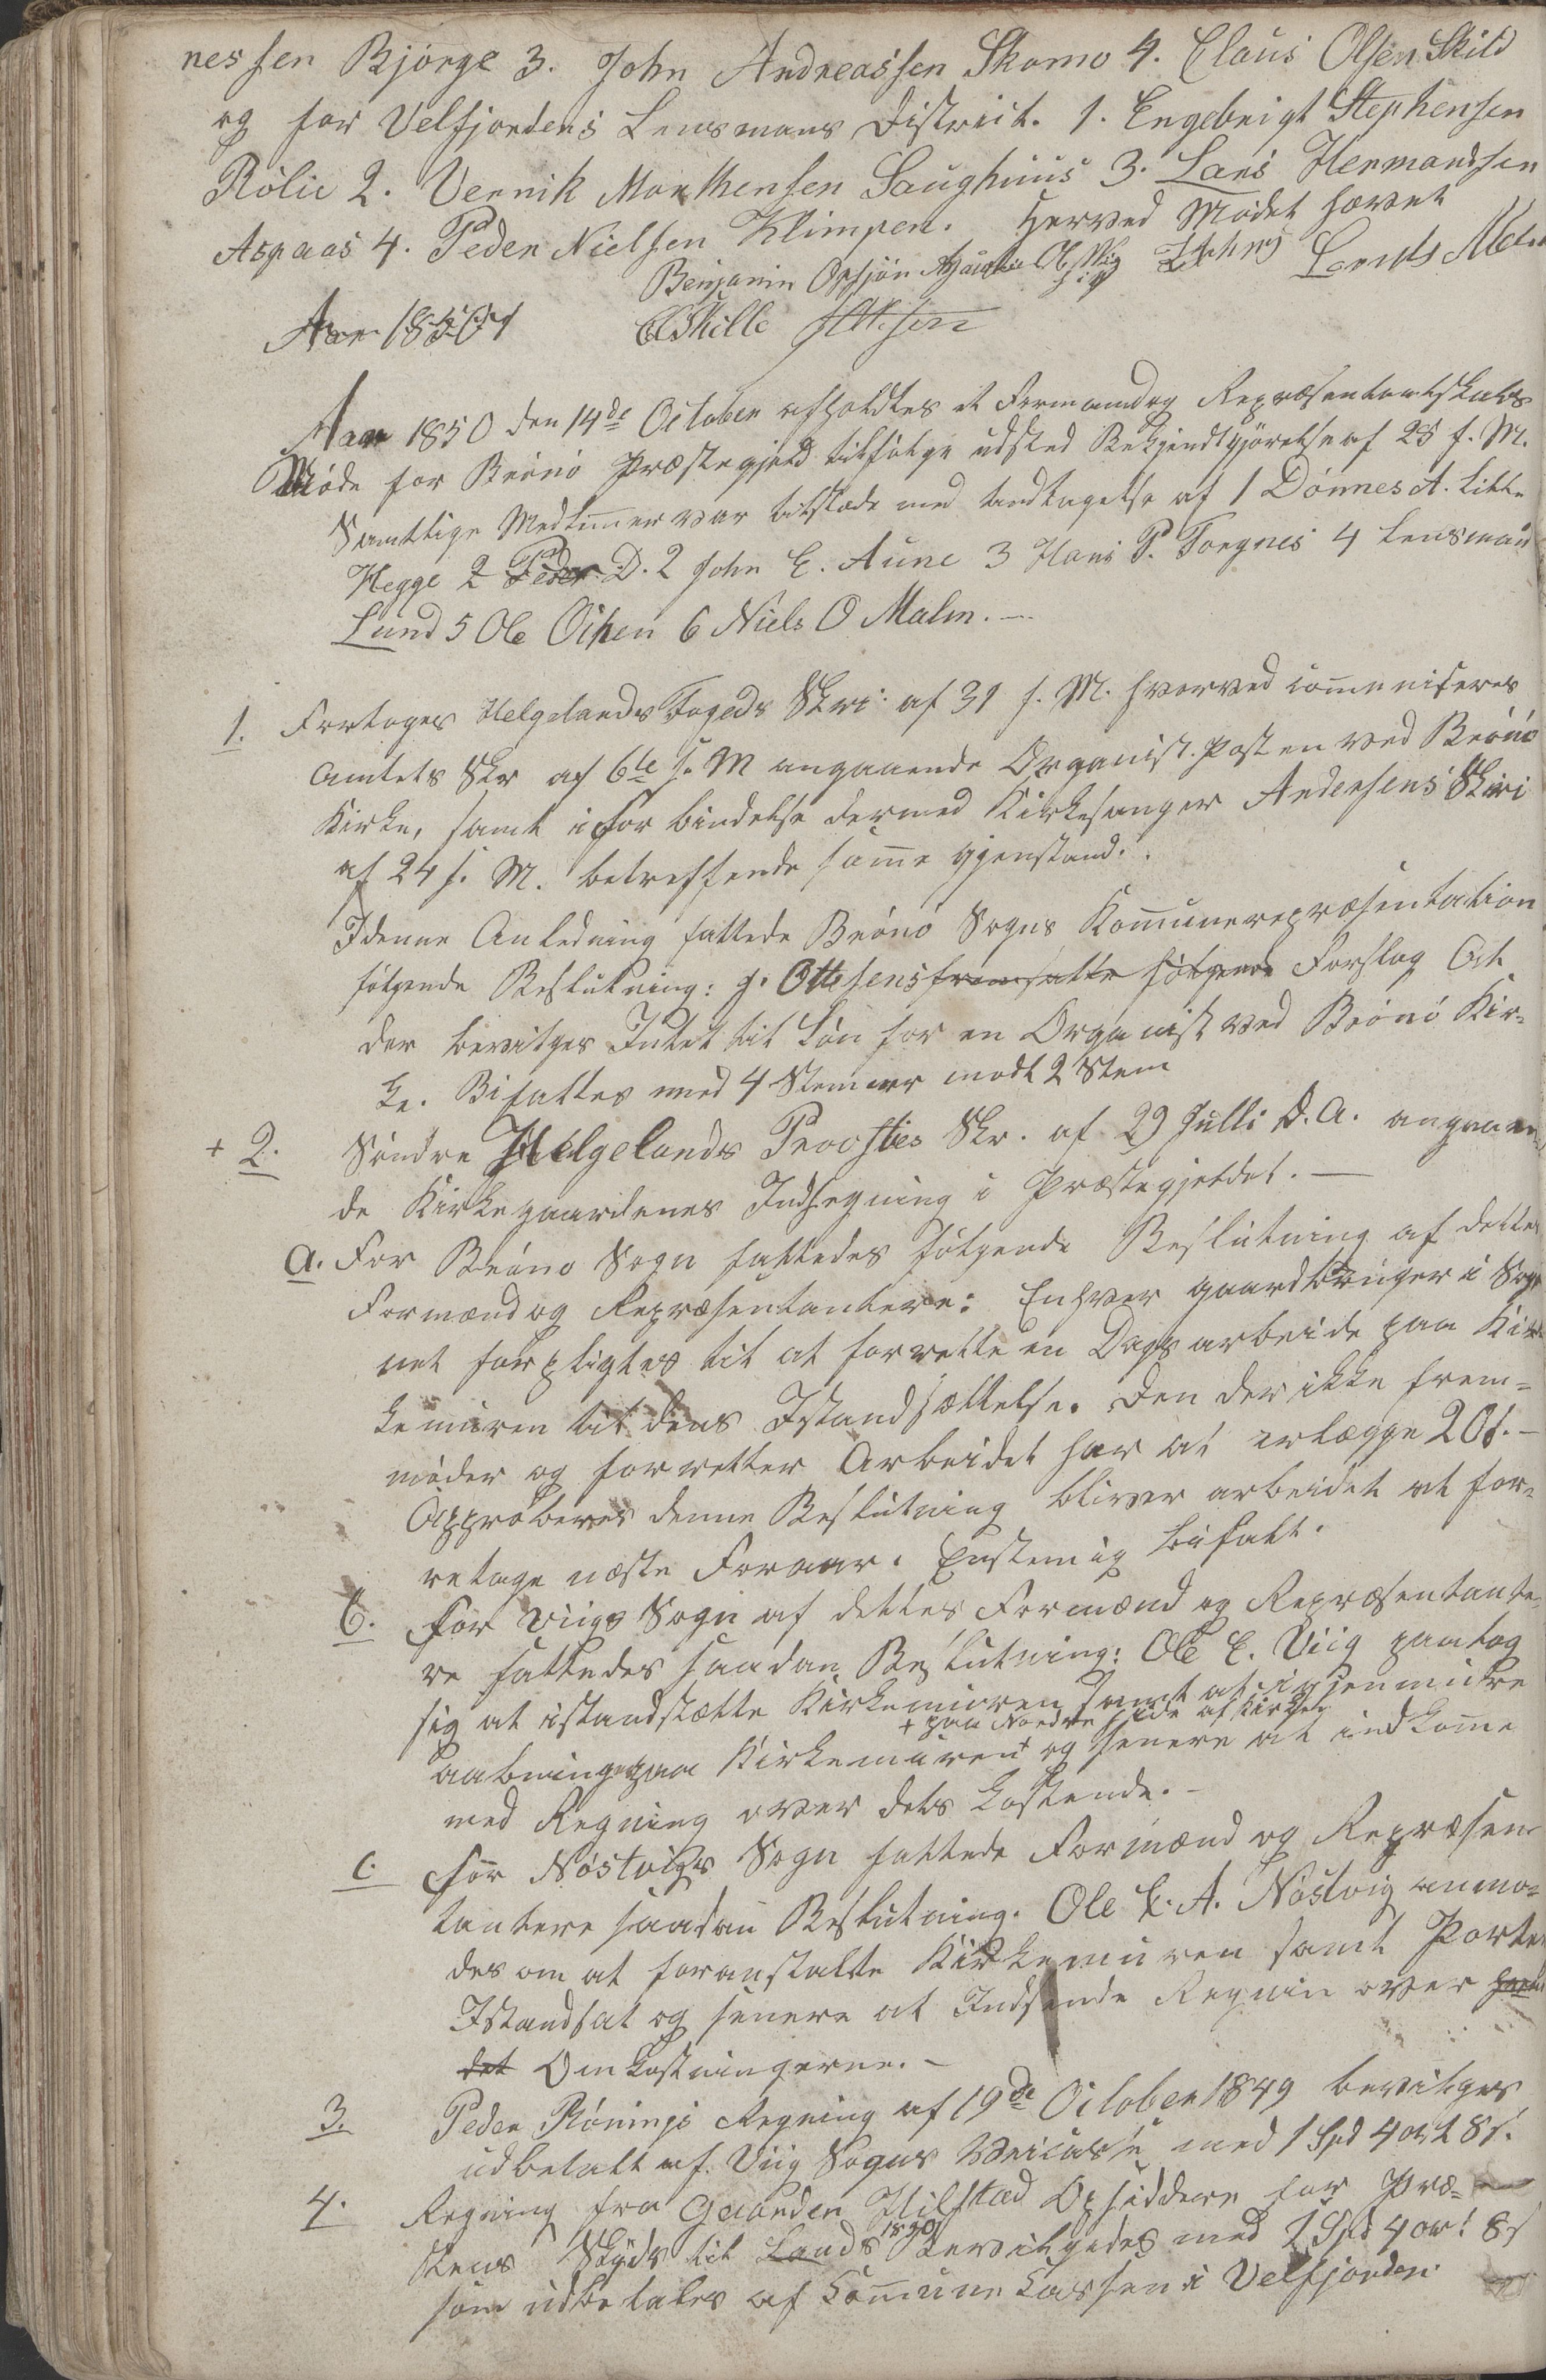 nessen Bjørge 3. John Andreassen Skomo 4. Claus Olsen Skild
og for Velfjordens Lensmans District. 1. Engebrigt Stephensen
Rølie 2. Vennik Monthensen Saughuus 3. Lars Hermandsen
Aspaas 4. Peder Nielsen Klimpen. Herved Mødet hævet
Benjamin Opsjøn
Aar 1850 CSkille
Aar 1850 den 14de October afholdtes et Formandog Repræsentantskabs
Møde for Brønø Præstegjeld tilfølge udsted Bekjendtgjørelse af 25 f. M.
Samtlige Medlemer var tilstede med Undtagelse af 1 Dønnes A. Lille
Hegge 2 Peder D. 2 John E. Aune 3 Hans P. Torgnes 4 Lensman
Lund 5 Ole Oihen 6 Niels O Malm. —
1. Foretoges Helgelands Fogeds Skri: af 31 f. M. hvorved comuniseres
Amtets Skr af 6te s. M angaaende Organist-Posten ved Brønø
Kirke, samt i Forbindelse dermed Kirkesanger Andersens Skri
af 24 f. M. betreffende samme Gjenstand.
I denne Anledning fattede Brønø Sogns Kommunerepræsentation
følgende Beslutning: J. Ottesens fremsatte følgende Forslag At
der bevilges Intet til Løn for en Organist ved Brønø Kir-
ke. Bifaltes med 4 Stemmer modt 2 Stem
+ 2. Søndre Helgelands Provsties Skr. af 29 Julli D. A. angaaen-
de Kirkegaardenes Indhegning i Præstegjeldet. —
a. For Brønø Sogn fattedes følgende Beslutning af dettes
Formænd og Repræsentantere: Enhver Gaardbruger i Sog-
net forpligtes til at forrette en Dags arbeide paa Kir-
kemuren til dens Istandsættelse. Den der ikke frem-
møder og forretter Arbeidet har at erlægge 20 s. —
Approberes denne Beslutning bliver arbeidet at for-
retage næste Foraar. Enstemig bifalt.
b. For Viigs Sogn af dettes Formænd og Repræsentante-
re fattedes saadan Beslutning: Ole E. Viig paatog
sig at istandsætte Kirkemuren samt at igjenmure
+ paa Nordre Side af Kirken
aabninge paa Kirkemuren + og senere at indkomme
med Regning over dets Kostende. —
c. For Nøstvigs Sogn fattede Formænd og Repræsen-
tantere saadan Beslutning. Ole E. A. Nøstvig anmo-
des om at foranstalte Kirkemuren samt Porten
Istandsat og senere at Indsende Regnin over
det Omkostningerne. —
3. Peder Rønings Regning af 19de October 1849 bevilges
udbetalt af Viig Sogns Veicasse med 1 Spd 4 ort 8 s.
4. Regning fra Gaarden Hilstad Opsiddere for Præ-
stens Skyds til Lands 1850 bevilgedes med 1 Spd 4 ort 8 s
som udbetales af Kommune Cassen i Velfjorden